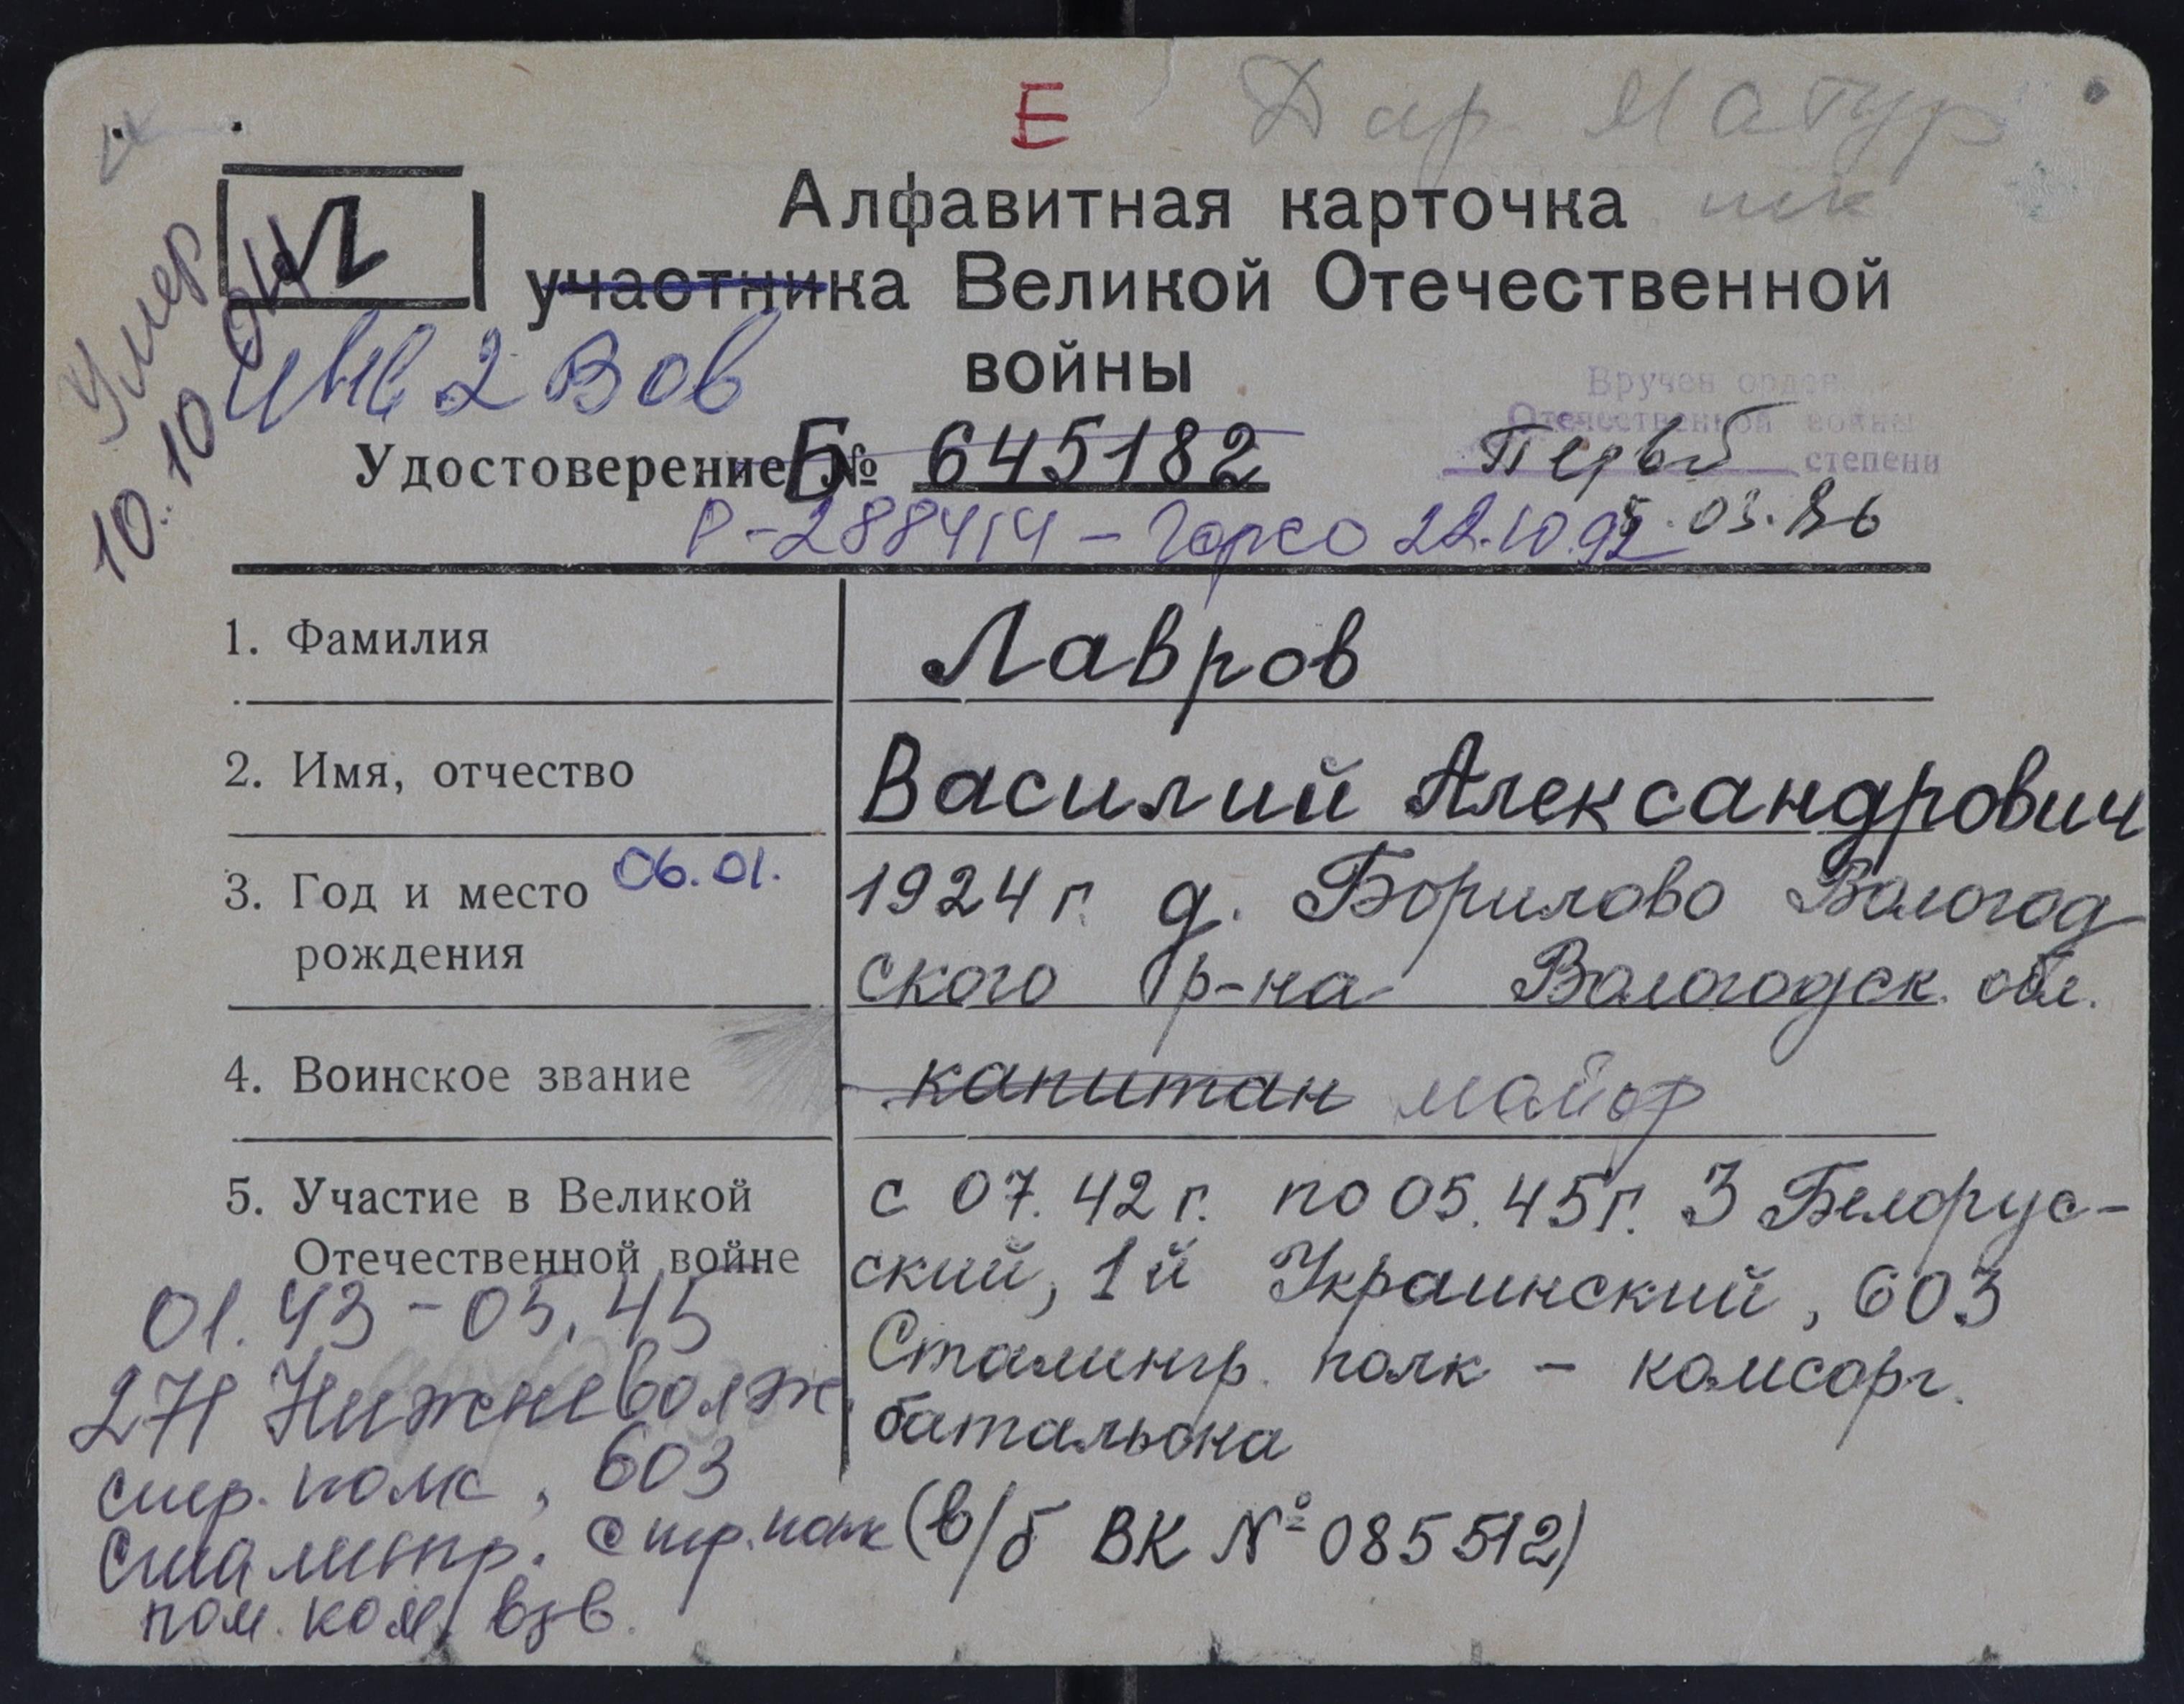 Е Дар Матур
шк
Л
Алфавитная карточка
участника Великой Отечественной
войны
Умер
10.10.04
инв 2 Вов
Вручен орден
Отечественной войны
Первой степени
5.03.86
Удостоверение Б № 645182
Р-288414 – Горсо 22.10.92
1. Фамилия Лавров
2. Имя, отчество Василий Александрович
3. Год и место 06.01. 1924 г. д. Борилово Вологод
рождения ского р-на Вологодск. обл.
4. Воинское звание капитан майор
5. Участие в Великой с 07.42 г. по 05.45 г. 3 Белорус-
Отечественной войне ский, 1й Украинский, 603
Сталингр. полк – комсорг.
батальона
(в/б ВК № 085512)
01.43 – 05.45
271 Нижневолж.
стр. полк, 603
Сталингр. стр. полк
пом. ком. взв.